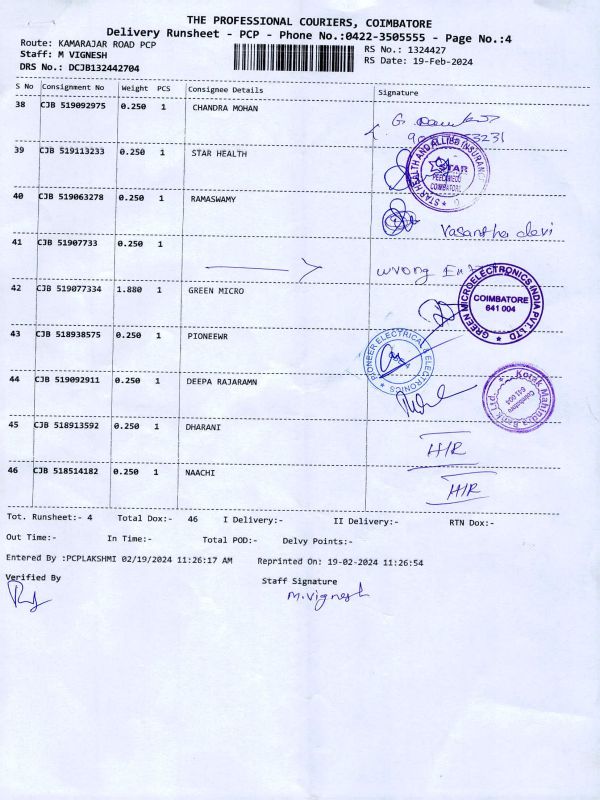 THE PROFESSIONAL COURIERS, COIMBATORE
Delivery Runsheet - PCP - Phone No.:0422-3505555 - Page No.:4
Route: KAMARAJAR ROAD PCP
RS No.: 1324427
Staff: M VIGNESH
RS Date: 19-Feb-2024
DRS No.: DCJB132442704
S No Consignment No Weight PCS Consignee Details Signature
38 CJB 519092975 0.250 1 CHANDRA MOHAN
39 CJB 519113233 0.250 1 STAR HEALTH
STAR HEALTH AND ALLIED INSURANCE
STAR
COIMBATORE
40 CJB 519063278 0.250 1 RAMASWAMY
Vasantha devi
41 CJB 51907733 0.250 1
wrong
42 CJB 519077334 1.880 1 GREEN MICRO
GREEN MICROELECTRONICS INDIA PVT. LTD
COIMBATORE
641 004
43 CJB 518938575 0.250 1 PIONEEWR
PIONEER ELECTRICAL ELECTRONICS
44 CJB 519092911 0.250 1 DEEPA RAJARAMN
Kotak Mahindra Bank Ltd
Coimbatore
641 004
45 CJB 518913592 0.250 1 DHARANI
H/R
46 CJB 518514182 0.250 1 NAACHI
H/R
Tot. Runsheet:- 4 Total Dox:- 46 I Delivery:- II Delivery:- RTN Dox:-
Out Time:- In Time:- Total POD:- Delvy Points:-
Entered By :PCPLAKSHMI 02/19/2024 11:26:17 AM Reprinted On: 19-02-2024 11:26:54
Verified By Staff Signature
M.Vignesh